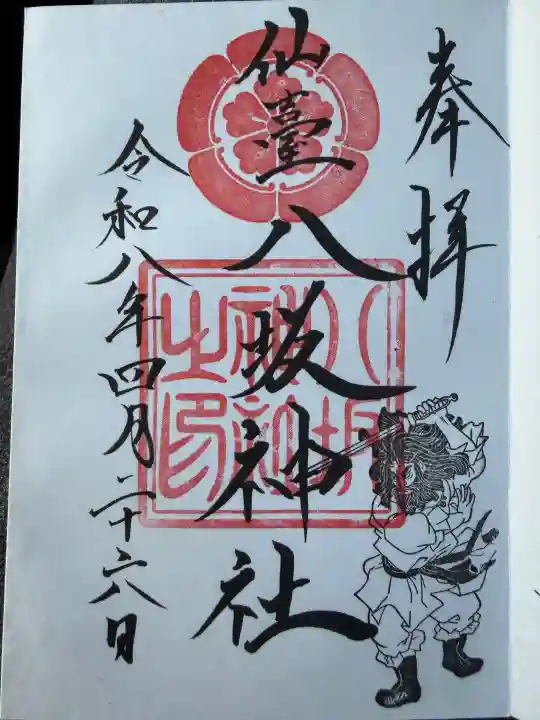 奉拝
仙臺八坂神社
八坂神社之印
令和八年四月二十六日